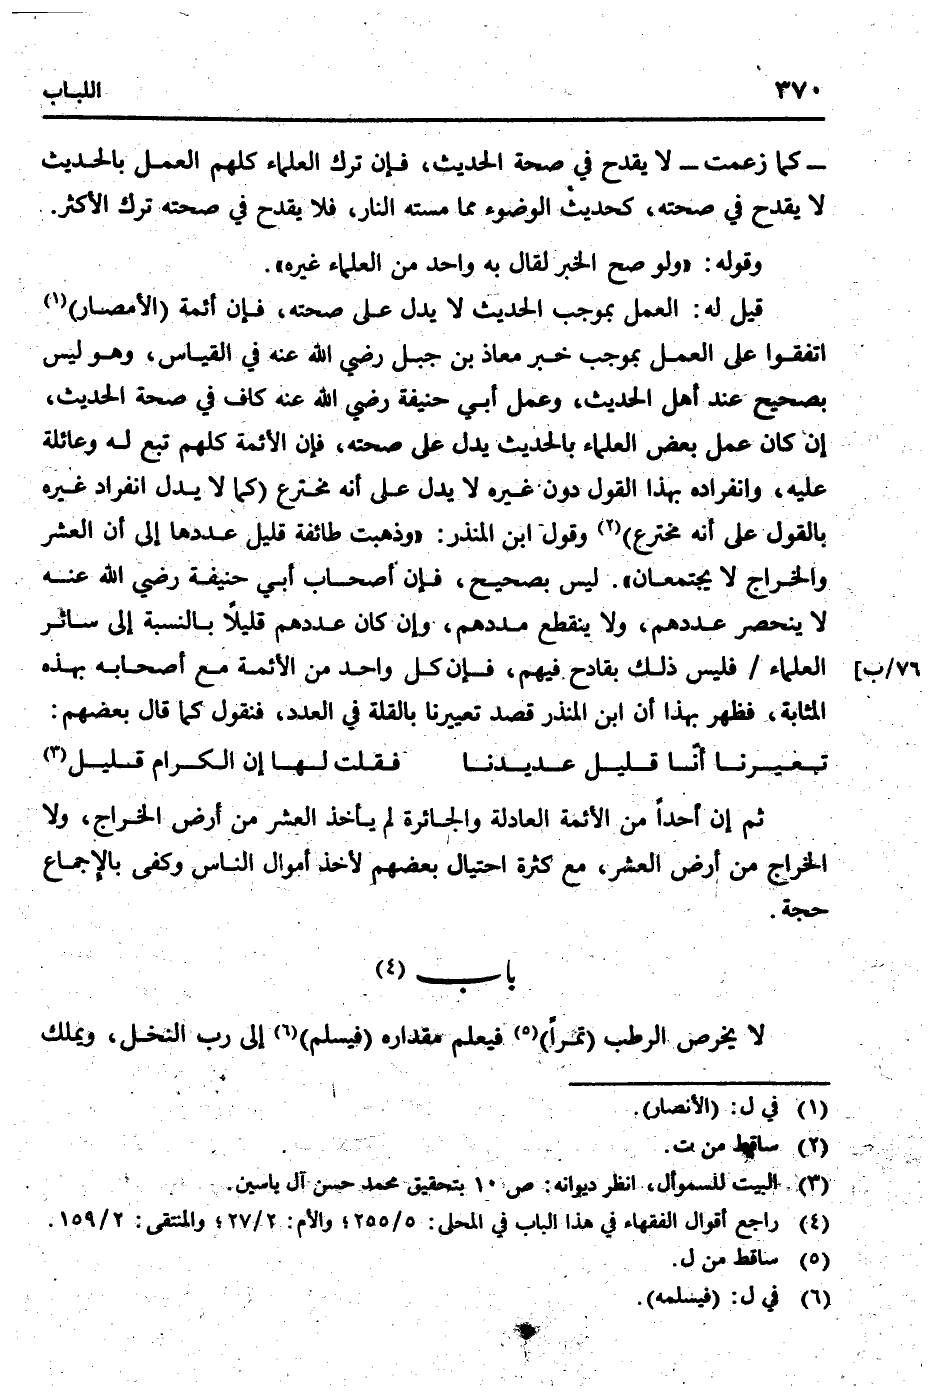 ٣٧٠ اللباب
ـ كما زعمت ـ لا يقدح في صحة الحديث، فإن ترك العلماء كلهم العمل بالحديث
لا يقدح في صحته، كحديث الوضوء مما مسته النار، فلا يقدح في صحته ترك الأكثر.
وقوله: «ولو صح الخبر لقال به واحد من العلماء غيره».
قيل له: العمل بموجب الحديث لا يدل على صحته، فإن أئمة (الأمصار)(١)
اتفقوا على العمل بموجب خبر معاذ بن جبل رضي الله عنه في القياس، وهو ليس
بصحيح عند أهل الحديث، وعمل أبي حنيفة رضي الله عنه كاف في صحة الحديث،
إن كان عمل بعض العلماء بالحديث يدل على صحته، فإن الأئمة كلهم تبع له وعائلة
عليه، وانفراده بهذا القول دون غيره لا يدل على أنه مخترع (كما لا يدل انفراد غيره
بالقول على أنه مخترع)(٢) وقول ابن المنذر: «وذهبت طائفة قليل عددها إلى أن العشر
والخراج لا يجتمعان». ليس بصحيح، فإن أصحاب أبي حنيفة رضي الله عنه
لا ينحصر عددهم، ولا ينقطع مددهم، وإن كان عددهم قليلاً بالنسبة إلى سائر
٧٦/ب] العلماء / فليس ذلك بقادح فيهم، فإن كل واحد من الأئمة مع أصحابه بهذه
المثابة، فظهر بهذا أن ابن المنذر قصد تعييرنا بالقلة في العدد، فنقول كما قال بعضهم:
تعيرنا أنّا قليل عديدنا فقلت لها إن الكرام قليل(٣)
ثم إن أحداً من الأئمة العادلة والجائرة لم يأخذ العشر من أرض الخراج، ولا
الخراج من أرض العشر، مع كثرة احتيال بعضهم لأخذ أموال الناس وكفى بالإجماع
حجة.
باب (٤)
لا يخرص الرطب (تمراً)(٥) فيعلم مقداره (فيسلم)(٦) إلى رب النخل، ويملك
(١) في ل: (الأنصار).
(٢) ساقط من ت.
(٣) البيت للسموأل، انظر ديوانه: ص ١٠ بتحقيق محمد حسن آل ياسين.
(٤) راجع أقوال الفقهاء في هذا الباب في المحلى: ٢٥٥/٥؛ والأم: ٢٧/٢؛ والمنتقى: ١٥٩/٢.
(٥) ساقط من ل.
(٦) في ل: (فيسلمه).